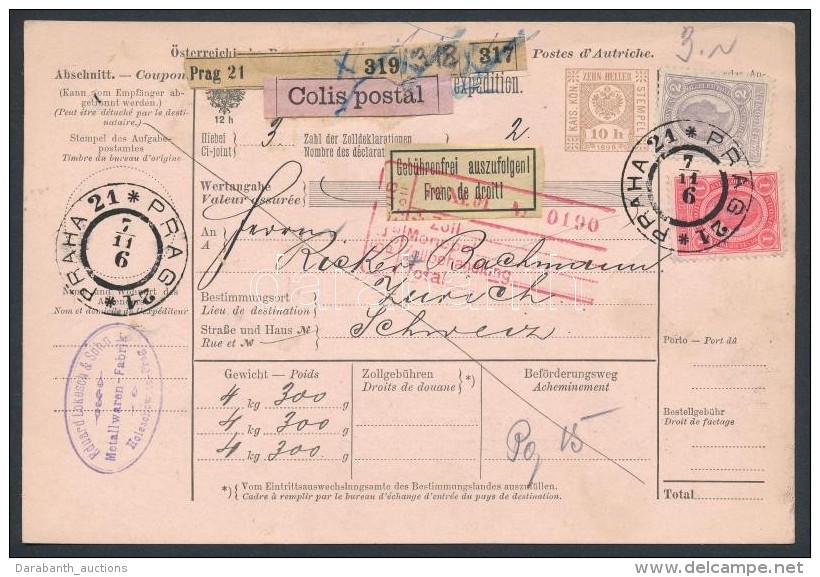 Postes d'Autriche.
3.
Abschnitt. — Coupon
Prag 21
319
318
317
Colis postal
expédition.
(Kann vom Empfänger ab-
getrennt werden.)
(Peut être détaché par le desti-
nataire.)
12 h
ZEHN HELLER
KAIS. KÖN.
STEMPEL
10 h
1898
2
Stempel des Aufgabe-
postamtes
Timbre du bureau d'origine
Hiebei
Ci-joint
3
Zahl der Zolldeklarationen
Nombre des déclarat
2
Gebührenfrei auszufolgen!
Franc de droit!
Wertangabe
Valeur assurée
№ 0190
Zoll
PRAHA 21 * PRAG 21 *
7
11
6
PRAHA 21 * PRAG 21 *
7
11
6
1
1
An
A
Herrn
Rickert Bachmann
Zürich
Schweiz
Bestimmungsort
Lieu de destination
Straße und Haus №
Rue et №
Nom et domicile de l'expéditeur
Porto — Port dû
Eduard Lokesch & Sohn
Metallwaren-Fabrik
Gewicht — Poids
Zollgebühren
Droits de douane
*)
Beförderungsweg
Acheminement
4 kg 300 g
4 kg 300 g
4 kg 300 g
15
Bestellgebühr
Droit de factage
*) Vom Eintrittsauswechslungsamte des Bestimmungslandes auszufüllen.
Cadre à remplir par le bureau d'échange d'entrée du pays de destination.
Total
darabanth
Darabanth_auctions
delcampe.net